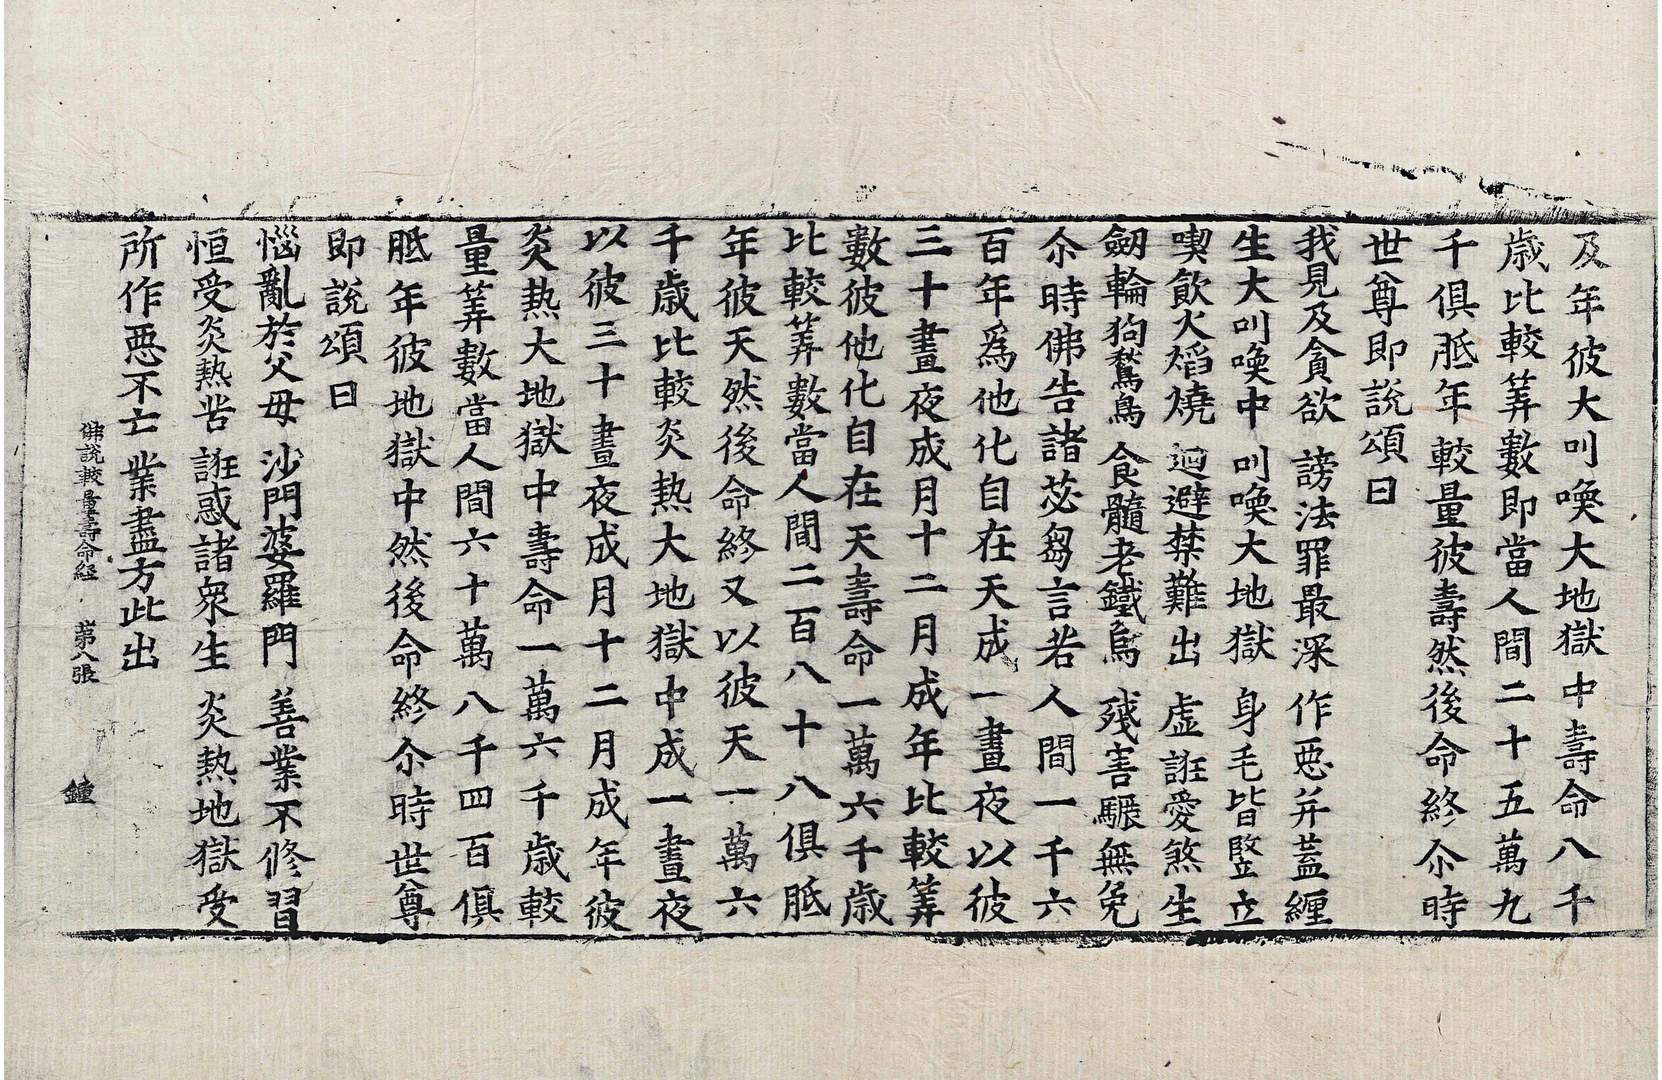 及年彼大叫喚大地獄中壽命八千
歲比較筭數即當人間二十五萬九
千俱胝年較量彼壽然後命終尒時
世尊即說頌曰
我見及貪欲 謗法罪最深 作惡并蓋纏
生大叫喚中 叫喚大地獄 身毛皆豎立
喫飲火熖燒 迴避禁難出 虛誑愛煞生
劒輪狗鶖鳥 食髓老鐵烏 殘害驅無免
尒時佛告諸苾芻言若人間一千六
百年為他化自在天成一晝夜以彼
三十晝夜成月十二月成年比較筭
數彼他化自在天壽命一萬六千歲
比較筭數當人間二百八十八俱胝
年彼天然後命終又以彼天一萬六
千歲比較炎熱大地獄中成一晝夜
以彼三十晝夜成月十二月成年彼
炎熱大地獄中壽命一萬六千歲較
量筭數當人間六十萬八千四百俱
胝年彼地獄中然後命終尒時世尊
即說頌曰
惱亂於父母 沙門婆羅門 善業不修習
恒受炎熱苦 誑惑諸衆生 炎熱地獄受
所作惡不亡 業盡方此出
佛說較量壽命經 第八張 鍾